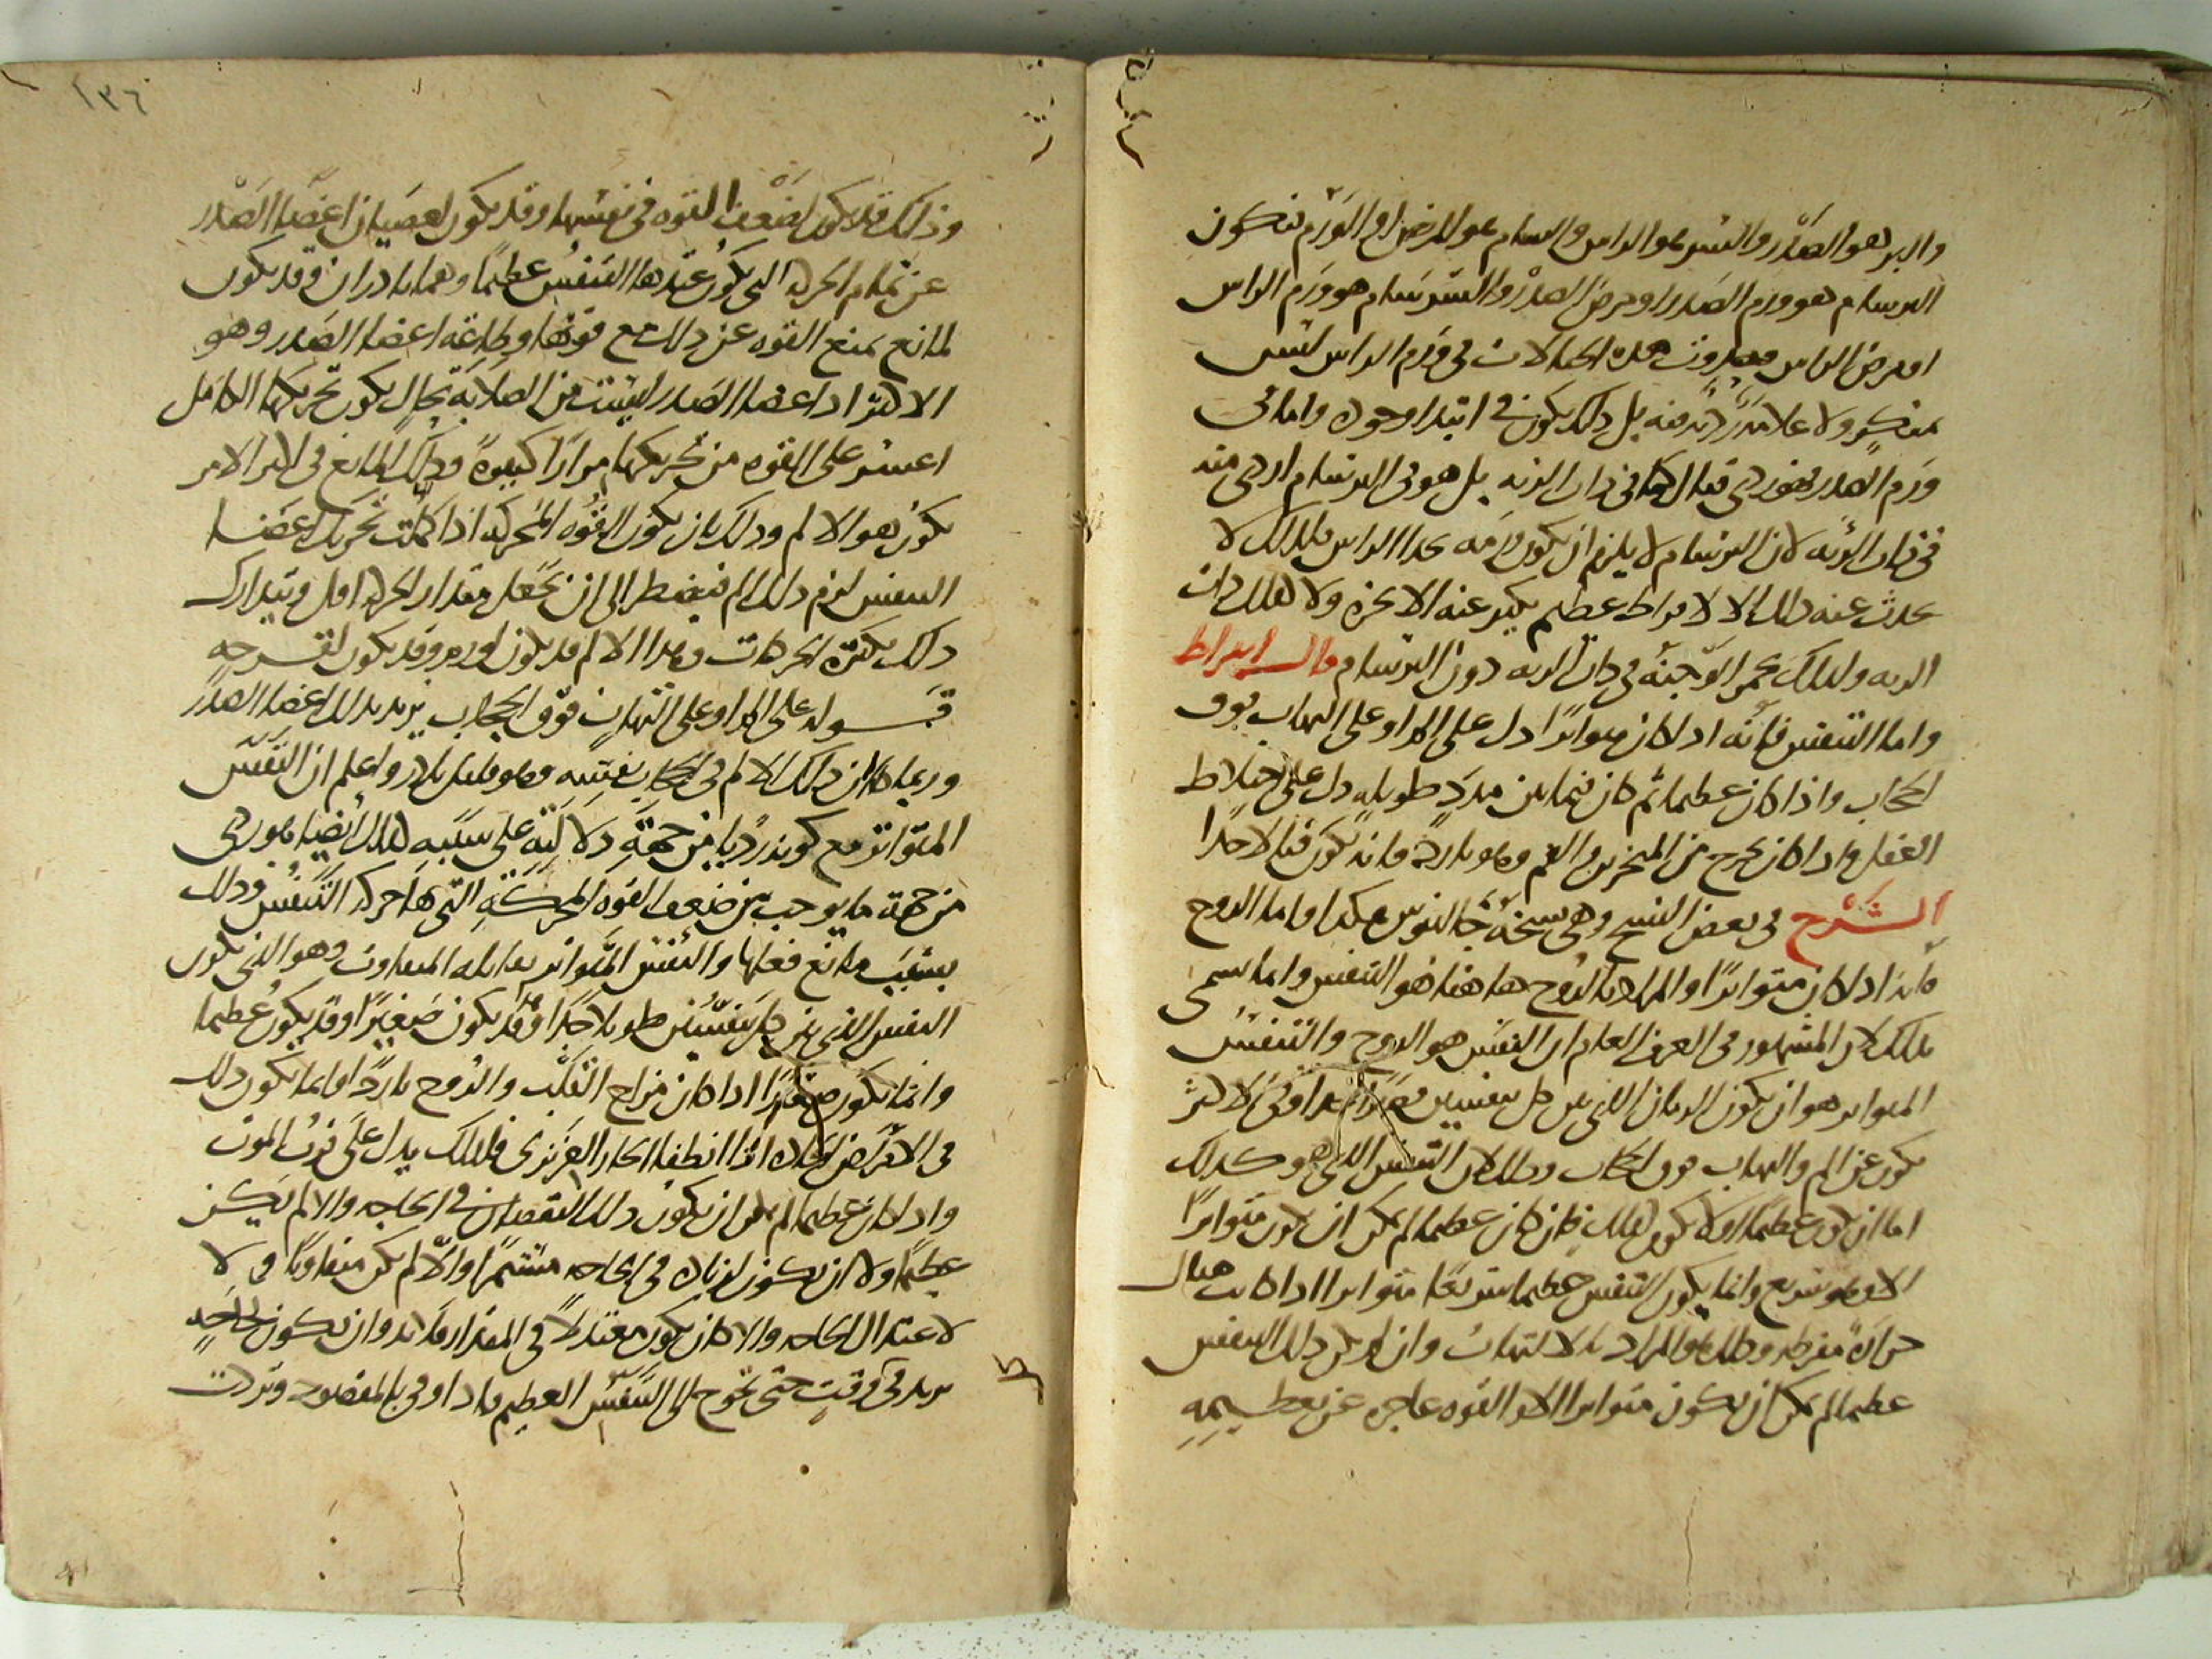 والبر هو الصدر والسر هو الراس والسام هو المرض او الورم فتكون
البرسام هو ورم الصدر او مرض الصدر والسرسام هو ورم الراس
او مرض الراس فحدوث هذه الحالات في ورم الراس ليس
بمنكر ولا علامة ردية فيه بل ذلك يكون في ابتدا وجوده واما في
ورم الصدر فهو ردي قتال كما في ذات الريه بل هو في البرسام اردى منه
في ذات الريه لان البرسام لا يلزم ان يكون ورمه بحذا الراس فلذلك لا
يحدث عنه ذلك الا لافراط عظيم يكثر عنه الابخره ولا كذلك ذات
الريه ولذلك تحمر الوجنة في ذات الريه دون البرسام قال ابقراط
واما التنفس فانه اذا كان متواترا دل على الم او على التهاب فوق
الحجاب واذا كان عظيما ثم كان فيما بين مدد طويله دل على اختلاط
العقل واذا كان يخرج من المنخرين والفم وهو بارد فانه يكون قتالا جدا
الشرح في بعض النسخ وهي نسخة جالينوس هكذا واما الروح
فانه اذا كان متواترا والمراد بالروح ها هنا هو التنفس وانما سمى
بذلك لان المشهور في العرف العام ان النفس هو الروح والتنفس
المتواتر هو ان يكون الزمان الذي بين كل نفسين قصيرا وهذا في الاكثر
يكون عن الم والتهاب فوق الحجاب وذلك لان التنفس الذي هو كذلك
اما ان يكون عظيما او لا يكون كذلك فان كان عظيما لم يكن ان يكون متواترا
الا وهو سريع وانما يكون التنفس عظيما سريعا متواترا اذا كانت هناك
حرارة مفرطه وذلك هو المراد بالالتهاب وان لم يكن ذلك التنفس
عظيما لم يمكن ان يكون متواترا الا لان القوه عاجزه عن تعظيمه
١٣٦
وذلك قد يكون لضعف القوه في نفسها وقد يكون لعصيان اعضا الصدر
عن تمام الحركه التي يكون عندها التنفس عظيما وهما نادران وقد يكون
لمانع يمنع القوه عن ذلك مع قوتها وطاعة اعضا الصدر وهو
الاكثر اذ اعضا الصدر ليست من الصلابة بحال يكون تحريكها الكامل
اعسر على القوه من تحريكها مرارا كثيرة وذلك المانع في اكثر الامر
يكون هو الالم وذلك بان يكون القوه المحركه اذا كملت تحريك اعضا
التنفس لزم ذلك الم فيضطر الى ان تجعل مقدار الحركه اقل وتتدارك
ذلك بكثرة الحركات وهذا الالم قد يكون لورم وقد يكون لقرحه
قوله على الم او على التهاب فوق الحجاب يريد بذلك اعضا الصدر
وربما كان ذلك الالم في الحجاب نفسه وهو قليل نادر واعلم ان التنفس
المتواتر مع كونه رديا من جهة دلالته على سببه كذلك ايضا هو ردي
من جهة ما يوجب من ضعف القوه المحركة التي بها حركة التنفس وذلك
بسبب مانع فعلها والتنفس المتواتر يقابله المتفاوت وهو الذي يكون
النفس الذي بين كل نفسين طويلا جدا وقد يكون صغيرا وقد يكون عظيما
وانما يكون صغيرا اذا كان مزاج القلب والروح باردا وانما يكون ذلك
في الامراض الحاده اذا انطفا الحار الغريزي فلذلك يدل على قرب الموت
واذا كان عظيما لم يمكن ان يكون ذلك لنقصان في الحاجه والا لم يكن
عظيما ولا ان يكون لزياده في الحاجه مستمرا والا لم يكن متفاوتا ولا
لاعتدال الحاجه والا كان يكون معتدلا في المقدار فلا بد وان تكون لحاجة
تزيد في وقت حتى تحوج الى التنفس العظيم فاذا وفى بالمقصود وبردت